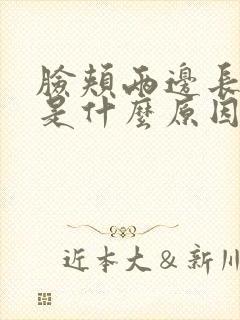 臉頰兩邊長
是什麼原因
近本大&新川